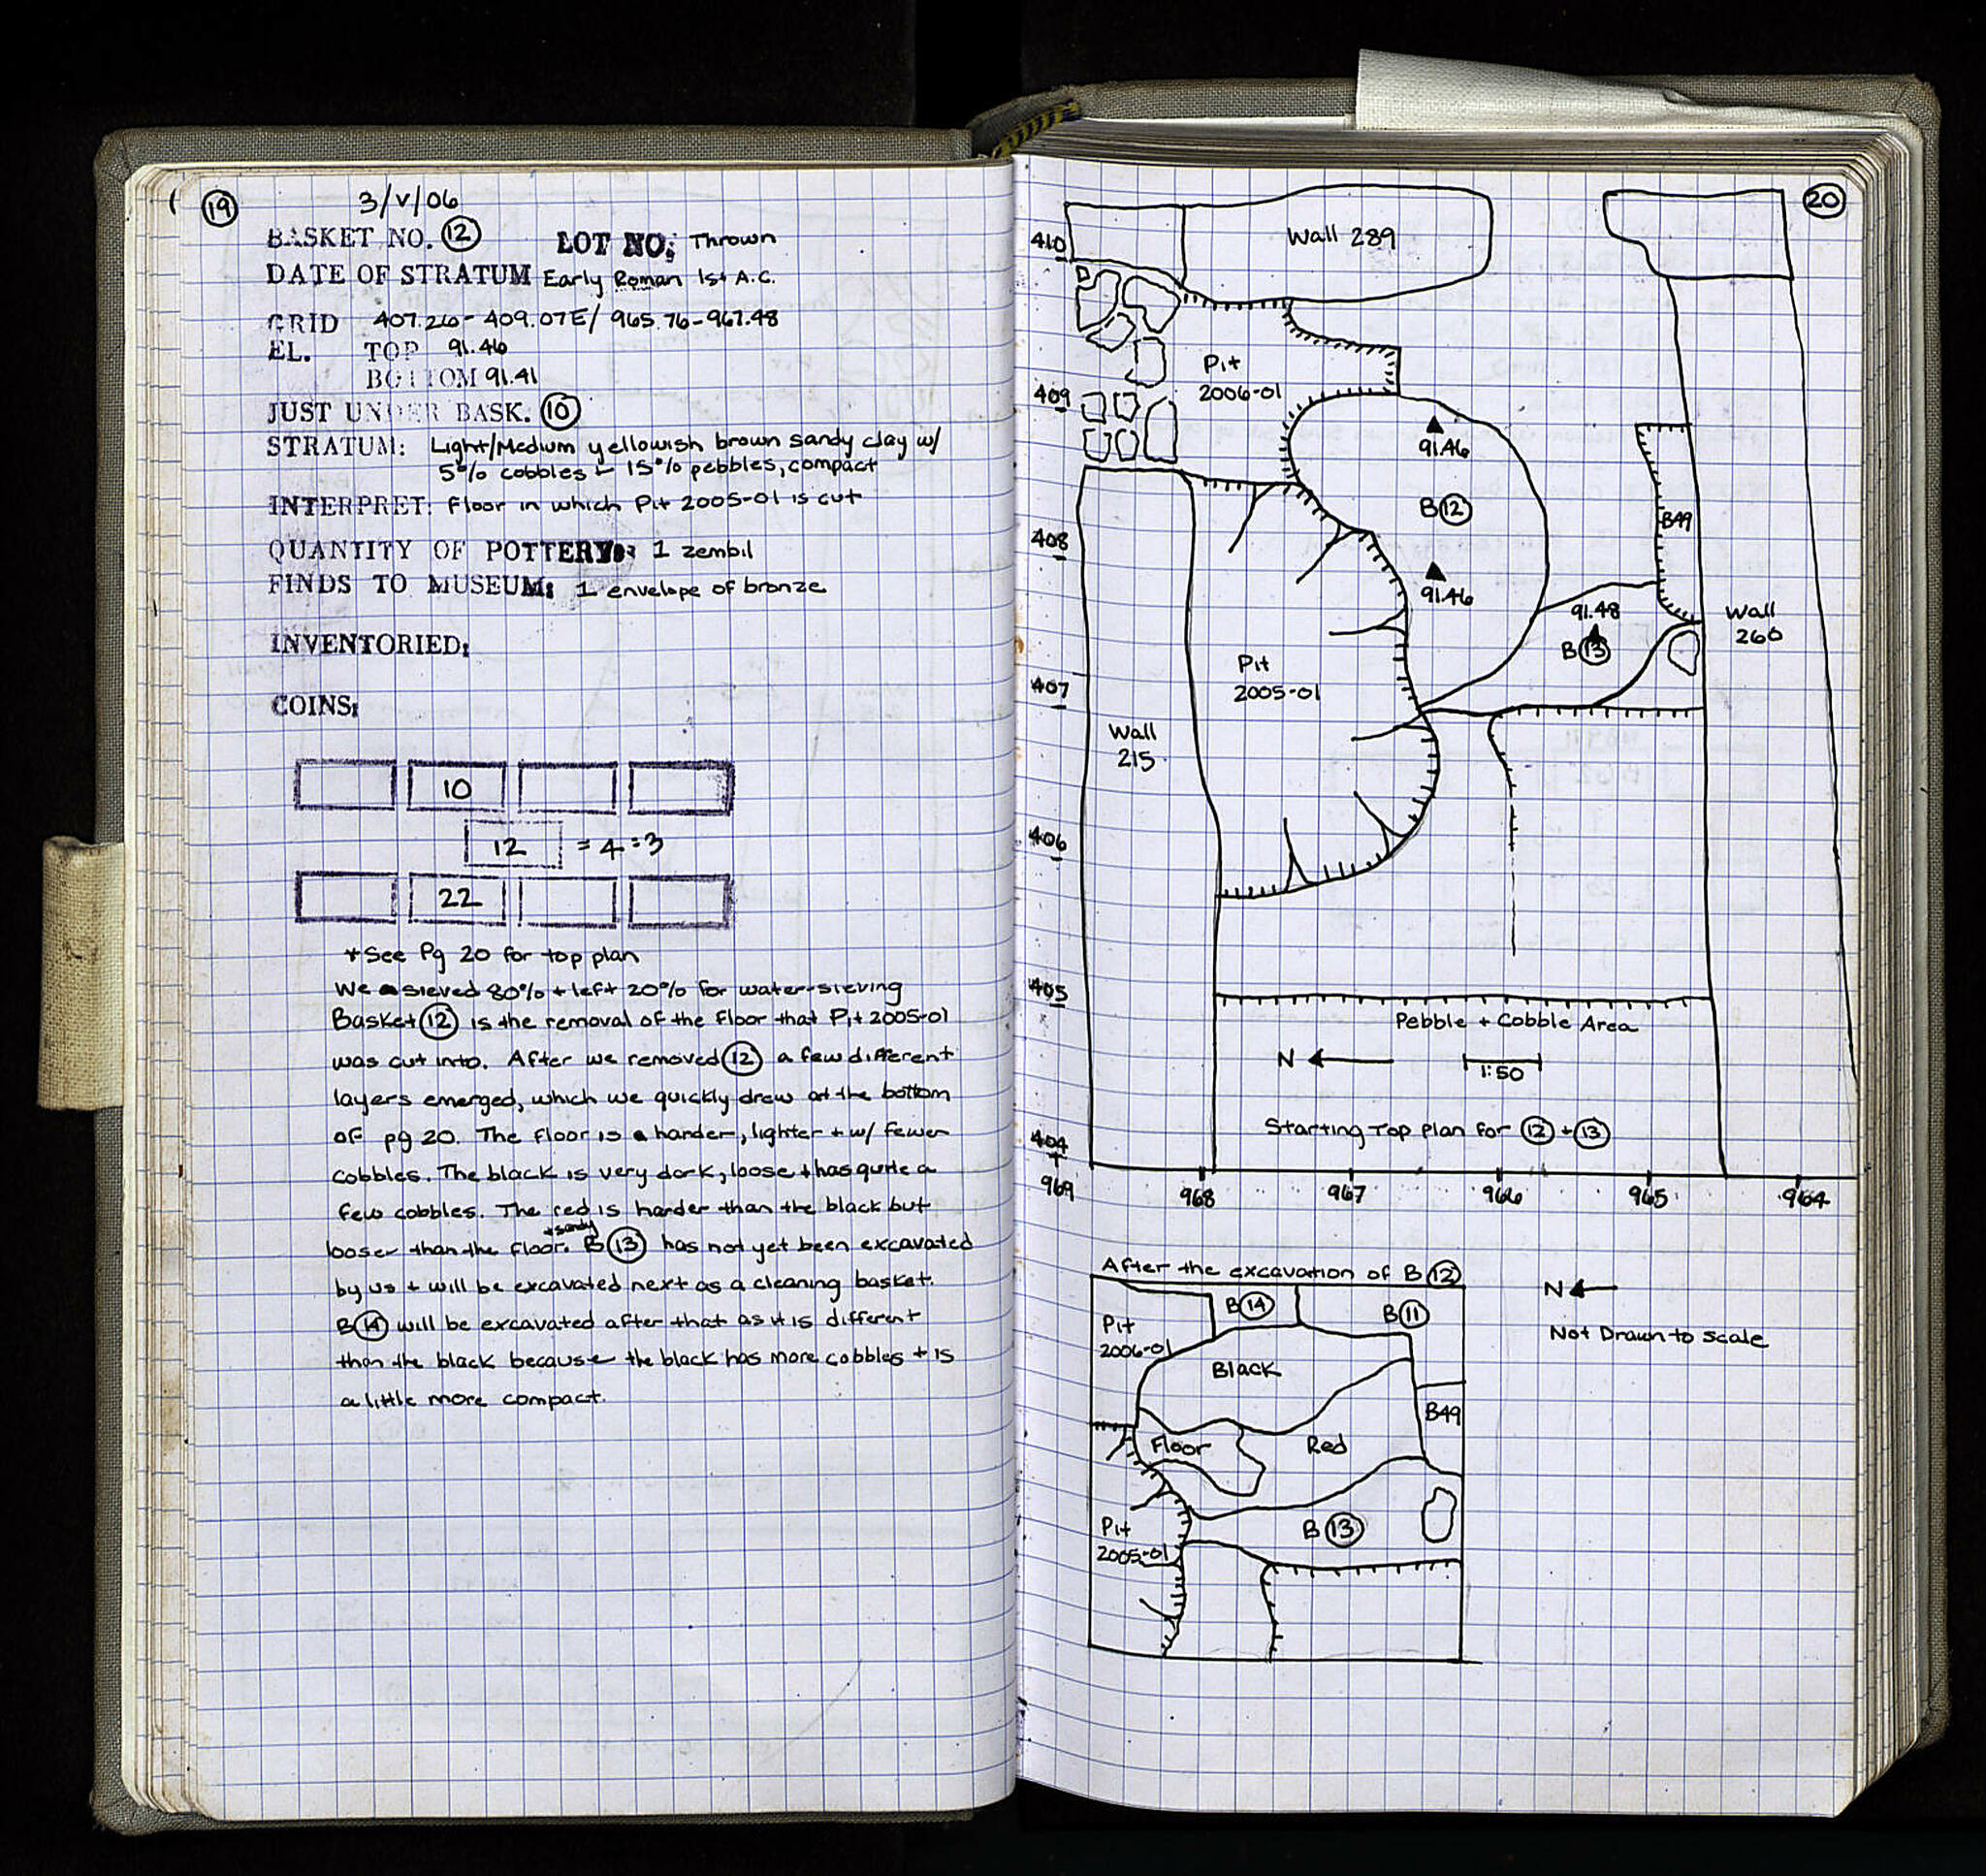 19
3/V/06
BASKET NO. 12 LOT NO: Thrown
DATE OF STRATUM Early Roman 1st A.C.
GRID 407.26-409.07E/ 965.76-967.48
EL. TOP 91.46
BOTTOM 91.41
JUST UNDER BASK. 10
STRATUM: Light/Medium yellowish brown sandy clay w/
5% cobbles - 15% pebbles, compact
INTERPRET: Floor in which Pit 2005-01 is cut
QUANTITY OF POTTERY: 1 zembil
FINDS TO MUSEUM: 1 envelope of bronze
INVENTORIED:
COINS:
10
12 = 4 = 3
22
*See Pg 20 for top plan
We sieved 80% + left 20% for water-sieving
Basket 12 is the removal of the floor that Pit 2005-01
was cut into. After we removed 12 a few different
layers emerged, which we quickly drew at the bottom
of pg 20. The floor is harder, lighter + w/ fewer
cobbles. The black is very dark, loose + has quite a
few cobbles. The red is harder than the black but
looser than the floor. + sandy B 13 has not yet been excavated
by us + will be excavated next as a cleaning basket.
B 14 will be excavated after that as it is different
than the black because the black has more cobbles + is
a little more compact.
20
410
Wall 289
Pit
2006-01
409
91.46
B 12
B49
408
91.46
91.48
B 13
Wall
260
Pit
2005-01
407
Wall
215
406
405
Pebble + Cobble Area
N
1:50
Starting Top Plan for 12 + 13
404
969 968 967 966 965 964
After the excavation of B 12
N
Not Drawn to Scale
B 14
B 11
Pit
2006-01
Black
B49
Floor
Red
B 13
Pit
2005-01